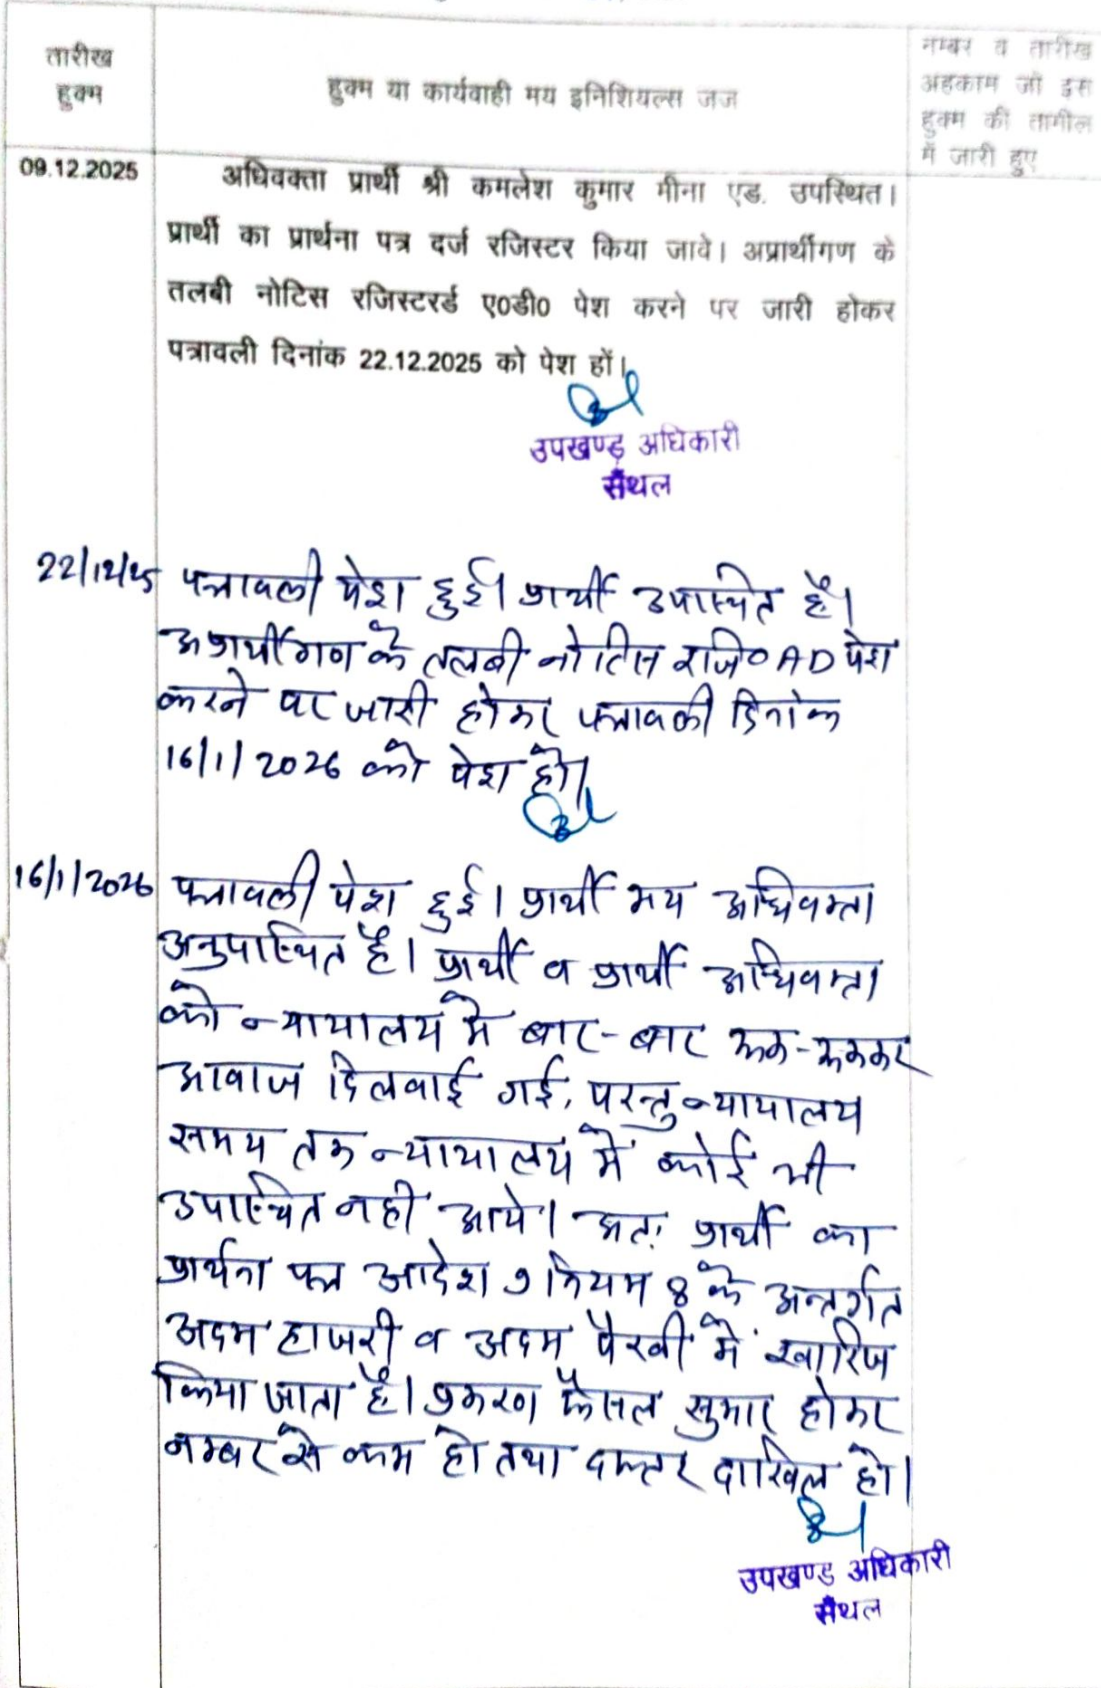 तारीख
हुक्म
हुक्म या कार्यवाही मय इनिशियल्स जज
नम्बर व तारीख
अहकाम जो इस
हुक्म की तामील
में जारी हुए
09.12.2025
अधिवक्ता प्रार्थी श्री कमलेश कुमार मीना एड. उपस्थित।
प्रार्थी का प्रार्थना पत्र दर्ज रजिस्टर किया जावे। अप्रार्थीगण के
तलबी नोटिस रजिस्टरर्ड ए0डी0 पेश करने पर जारी होकर
पत्रावली दिनांक 22.12.2025 को पेश हों।
उपखण्ड़ अधिकारी
सैंथल
22/12/25 पत्रावली पेश हुई। प्रार्थी उपस्थित है।
अप्रार्थीगण के तलबी नोटिस रजि० AD पेश
करने पर जारी होकर पत्रावली दिनांक
16/1/2026 को पेश हो।
16/1/2026 पत्रावली पेश हुई। प्रार्थी मय अधिवक्ता
अनुपस्थित है। प्रार्थी व प्रार्थी अधिवक्ता
को न्यायालय मे बार-बार रूक-रूककर
आवाज दिलवाई गई, परन्तु न्यायालय
समय तक न्यायालय में कोई भी
उपस्थित नही आये। अतः प्रार्थी का
प्रार्थना पत्र आदेश 9 नियम 8 के अन्तर्गत
अदम हाजरी व अदम पैरवी में खारिज
किया जाता है। प्रकरण फैसल सुमार होकर
नम्बर से कम हो तथा दफ्तर दाखिल हो।
उपखण्ड अधिकारी
सैंथल